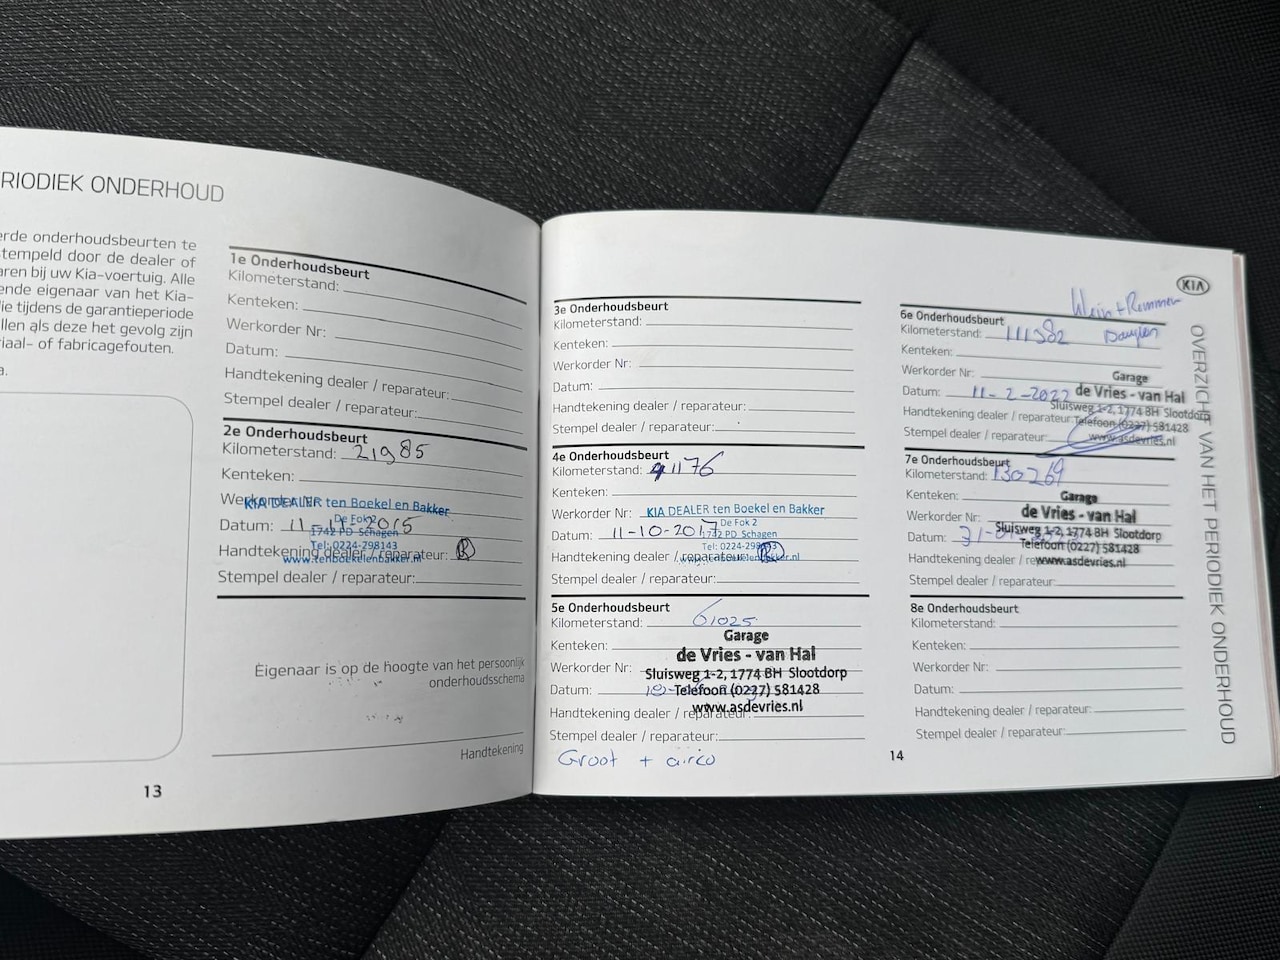 RIODIEK ONDERHOUD
erde onderhoudsbeurten te
tempeld door de dealer of
aren bij uw Kia-voertuig. Alle
ende eigenaar van het Kia-
lie tijdens de garantieperiode
llen als deze het gevolg zijn
riaal- of fabricagefouten.
a.
1e Onderhoudsbeurt
Kilometerstand:
Kenteken:
Werkorder Nr:
Datum:
Handtekening dealer / reparateur:
Stempel dealer / reparateur:
2e Onderhoudsbeurt
Kilometerstand: 21985
Kenteken:
Werkorder Nr:
KIA DEALER ten Boekel en Bakker
De Fok 2
Datum: 11-11-2015
1742 PD Schagen
Tel: 0224-298143
Handtekening dealer / reparateur: R
www.tenboekelenbakker.nl
Stempel dealer / reparateur:
Eigenaar is op de hoogte van het persoonlijk
onderhoudsschema
Handtekening
13
3e Onderhoudsbeurt
Kilometerstand:
Kenteken:
Werkorder Nr:
Datum:
Handtekening dealer / reparateur:
Stempel dealer / reparateur:
4e Onderhoudsbeurt
Kilometerstand: 41176
Kenteken:
Werkorder Nr: KIA DEALER ten Boekel en Bakker
De Fok 2
Datum: 11-10-2017
1742 PD Schagen
Tel: 0224-298143
Handtekening dealer / reparateur: R
www.tenboekelenbakker.nl
Stempel dealer / reparateur:
5e Onderhoudsbeurt
Kilometerstand: 61025
Kenteken:
Garage
de Vries - van Hal
Werkorder Nr:
Sluisweg 1-2, 1774 BH Slootdorp
Datum:
Telefoon (0227) 581428
www.asdevries.nl
Handtekening dealer / reparateur:
Stempel dealer / reparateur:
Groot + airco
14
KIA
Klein + Remmen
6e Onderhoudsbeurt
Kilometerstand: 111382
Kenteken:
Werkorder Nr:
Garage
de Vries - van Hal
Datum: 11-2-2022
Sluisweg 1-2, 1774 BH Slootdorp
Handtekening dealer / reparateur:
Telefoon (0227) 581428
www.asdevries.nl
Stempel dealer / reparateur:
7e Onderhoudsbeurt
Kilometerstand: 130269
Kenteken:
Garage
de Vries - van Hal
Werkorder Nr:
Sluisweg 1-2, 1774 BH Slootdorp
Datum:
Telefoon (0227) 581428
Handtekening dealer / re
www.asdevries.nl
Stempel dealer / reparateur:
8e Onderhoudsbeurt
Kilometerstand:
Kenteken:
Werkorder Nr:
Datum:
Handtekening dealer / reparateur:
Stempel dealer / reparateur:
OVERZICHT VAN HET PERIODIEK ONDERHOUD